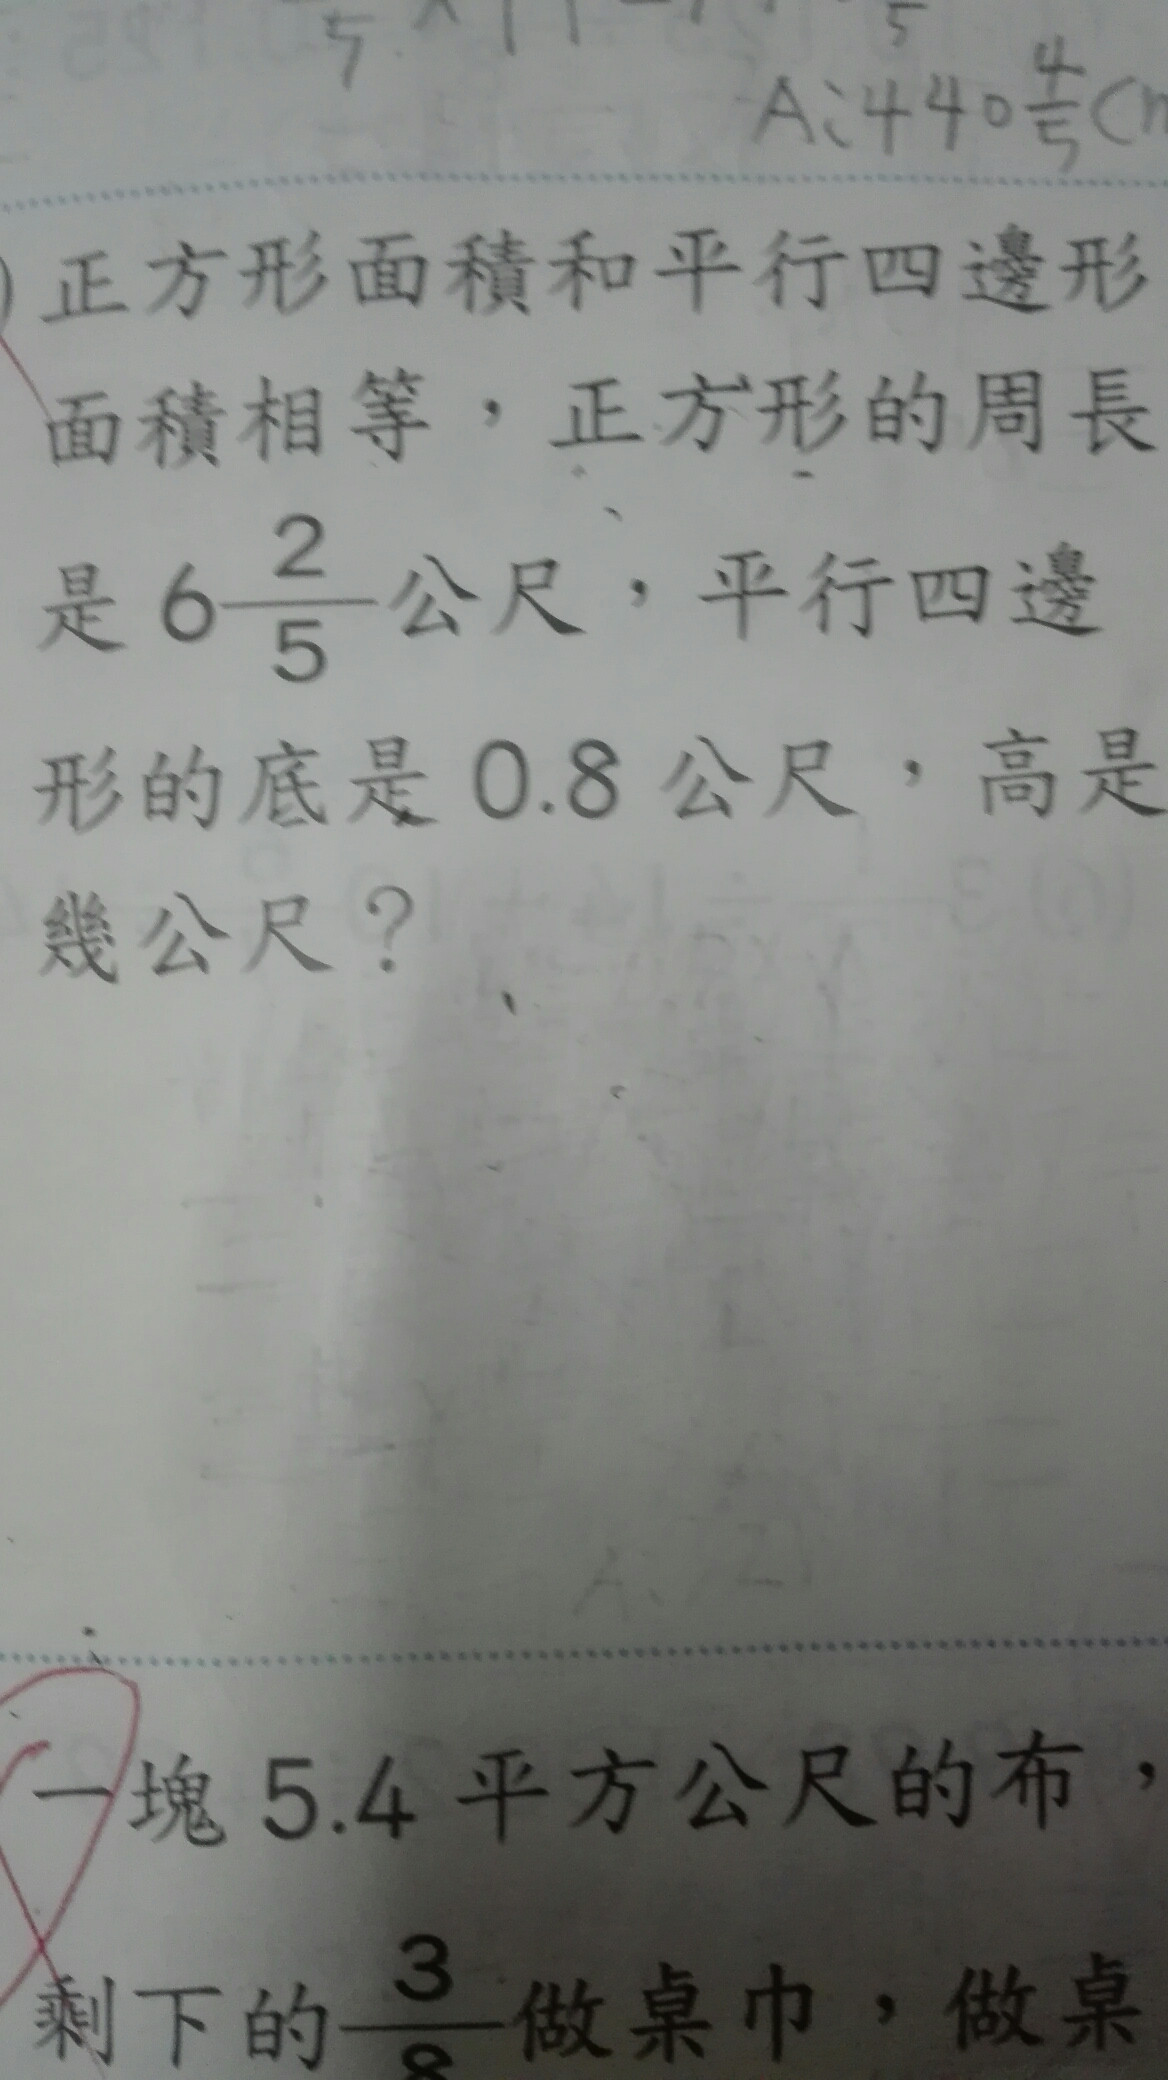 A:440 4/5 Cm
正方形面積和平行四邊形
面積相等，正方形的周長
是 6 2/5 公尺，平行四邊
形的底是 0.8 公尺，高是
幾公尺？
一塊 5.4 平方公尺的布，
剩下的 3/8 做桌巾，做桌